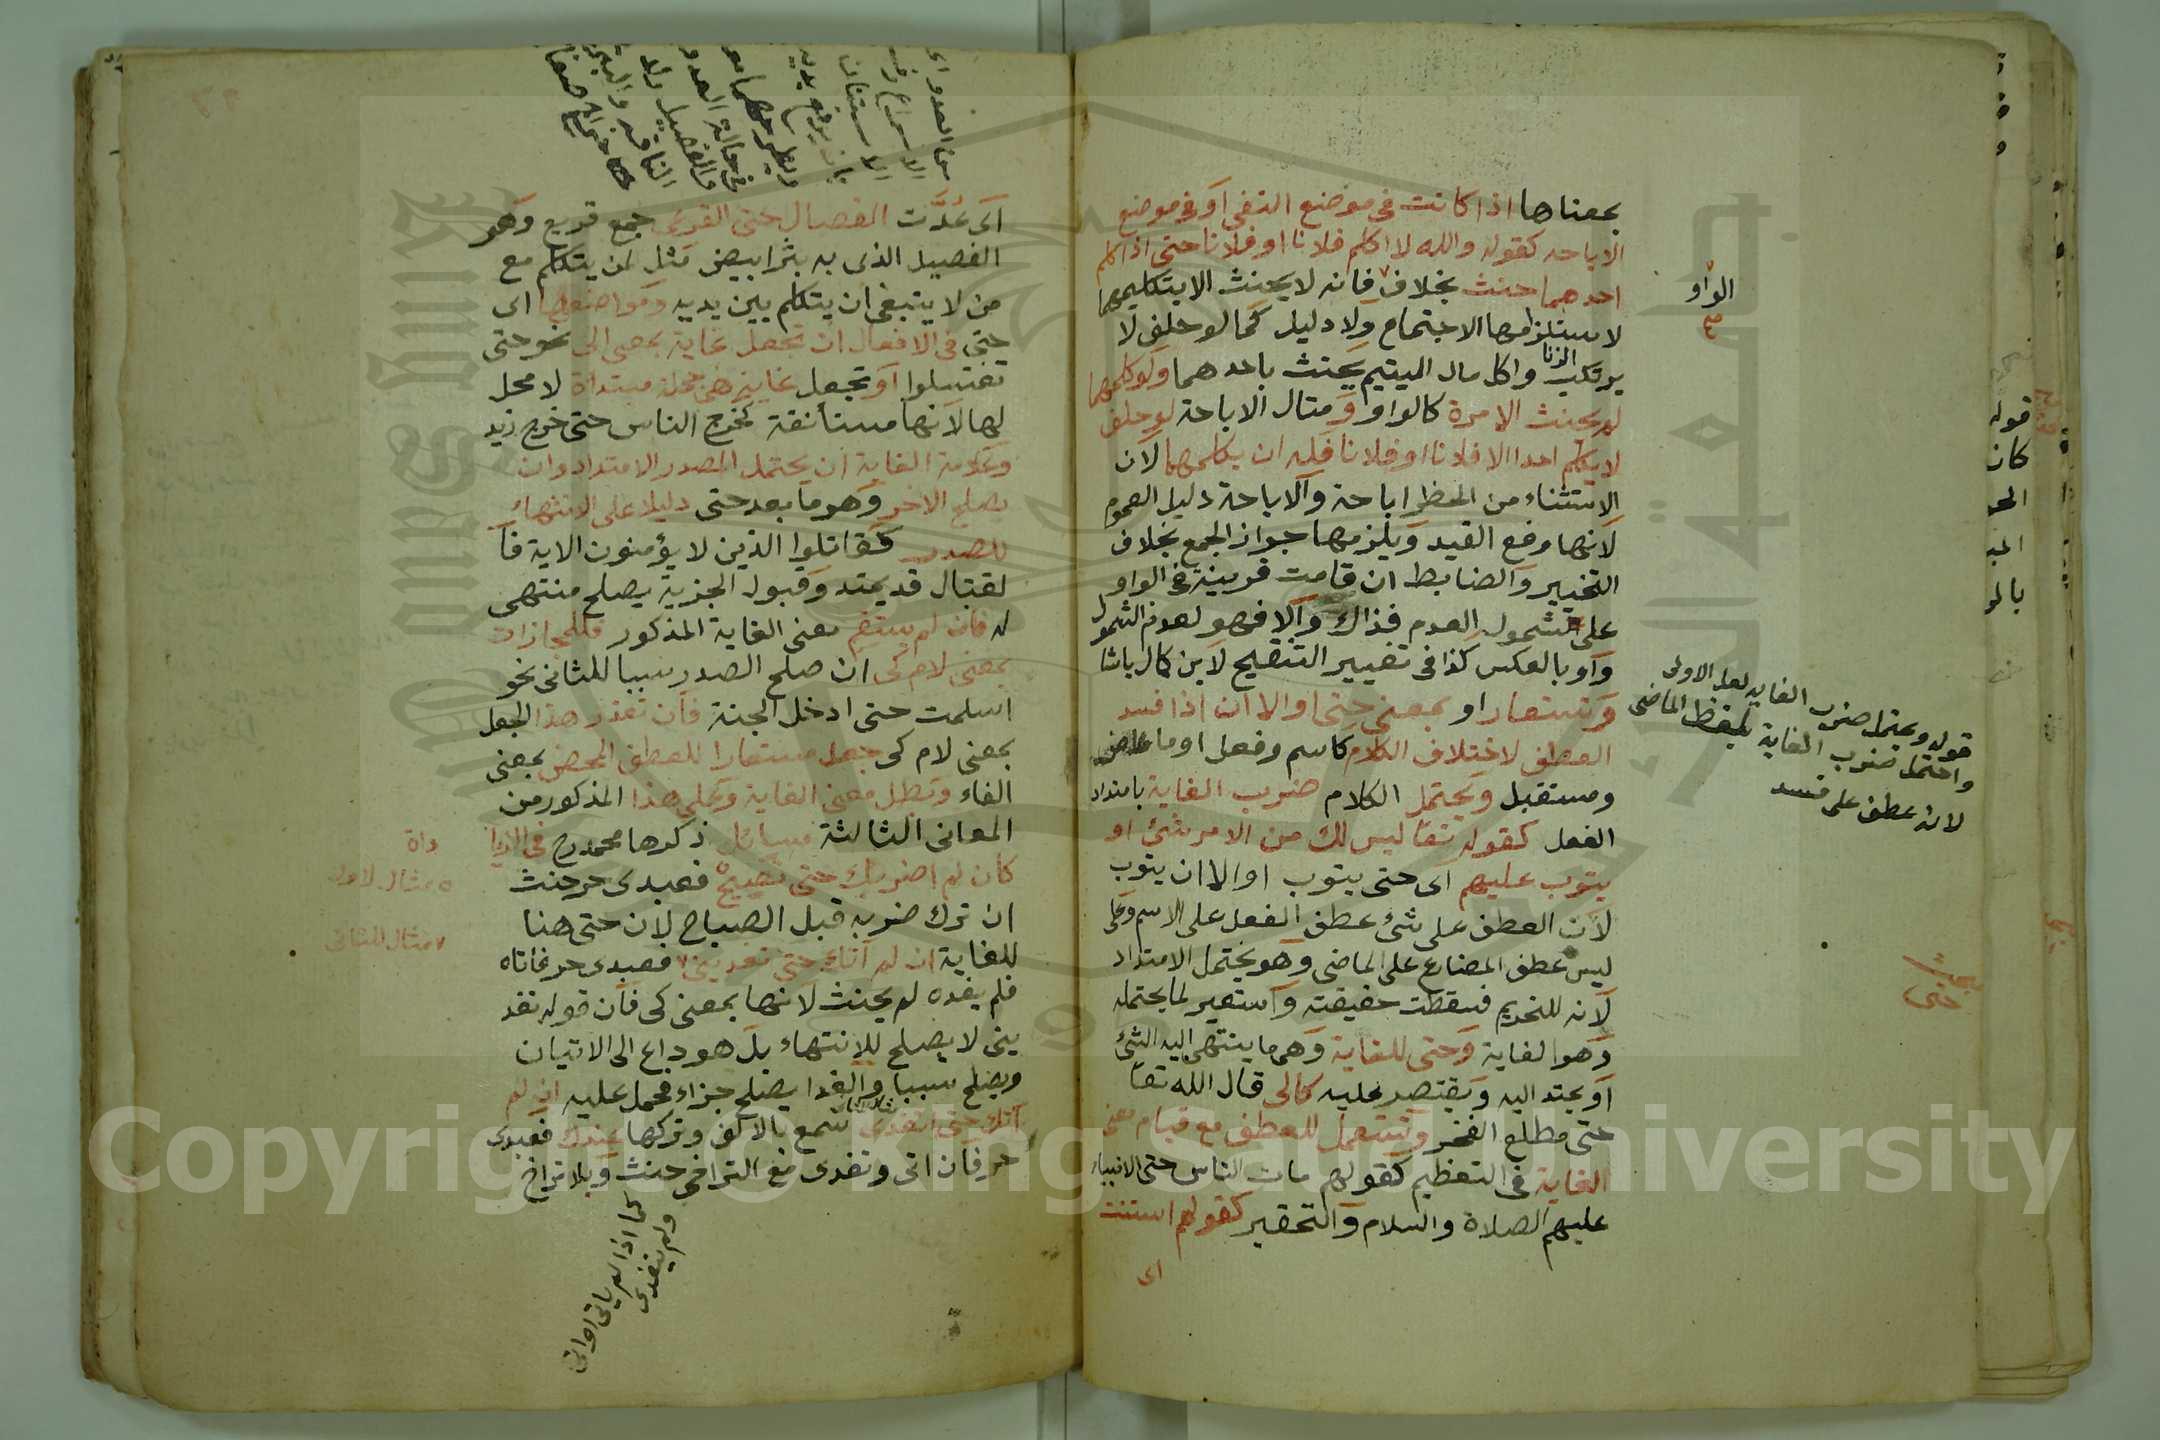 بمعناها اذا كانت في موضع النفي او في موضع
الاباحه كقوله والله لا اكلم فلانا او فلانا حتى اذا كلم
احدهما حنث بخلاف فانه لا يحنث الا بتكليمهما
لاستلزامها الاجتماع ولا دليل كما لو حلف لا
يرتكب الزنا واكل مال اليتيم يحنث باحدهما ولو كلمهما
لم يحنث الا مرة كالواو و مثال الاباحة لو حلف
لا يكلم احدا الا فلانا او فلانا فله ان يكلمهما لان
الاستثناء من الحظر اباحة والاباحة دليل العموم
لانها رفع القيد ويلزمها جواز الجمع بخلاف
التخيير والضابط ان قامت قرينة في الواو
على شمول العدم فذاك والا فهو لعدم الشمول
واو بالعكس كذا في تغيير التنقيح لابن كمال باشا
وتستعار او بمعنى حتى او الا ان اذا فسد
العطف لاختلاف الكلام كاسم وفعل او ماض
ومستقبل ويحتمل الكلام ضرب الغاية بامتداد
الفعل كقوله تعا ليس لك من الامر شئ او
يتوب عليهم اى حتى يتوب او الا ان يتوب
لان العطف على شئ عطف الفعل على الاسم وعلى
ليس عطف المضارع على الماضى وهو يحتمل الامتداد
لانه للتحريم فسقطت حقيقته واستعير لما يحتمله
وهو الغاية وحتى للغاية وهى ما ينتهى اليه الشئ
او يمتد اليه ويقتصر عليه كالى قال الله تعا
حتى مطلع الفجر وتستعمل للعطف مع قيام معنى
الغاية في التعظيم كقولهم مات الناس حتى الانبياء
عليهم الصلاة والسلام والتحقير كقولهم استنت
اى
الواو
قوله ويحتمل ضرب الغاية لعل الاولى
واحتمل ضرب الغاية بلفظ الماضى
لانه عطف على فسد
حتى
اى عدت الفصال حتى القرعى جمع قريع وهو
الفصيل الذى به بثر ابيض مثل لمن يتكلم مع
من لا ينبغى ان يتكلم بين يديه ومواضعها اى
حتى في الافعال ان تجعل غاية بمعنى الى نحو حتى
تغتسلوا او تجعل غاية هى جملة مبتدأة لا محل
لها لانها مستأنفة كخرج الناس حتى خرج زيد
وعلامة الغاية ان يحتمل الصدر الامتداد وان
يصلح الاخر وهو ما بعد حتى دليلا على الانتهاء
للصدر كقاتلوا الذين لا يؤمنون الاية فا
لقتال قد يمتد وقبول الجزية يصلح منتهى
له فان لم يستقم معنى الغاية المذكور فللمجازات
بمعنى لام كى ان صلح الصدر سببا للثانى نحو
اسلمت حتى ادخل الجنة فان تعذر هذا الجعل
بمعنى لام كى جعل مستعارا للعطف المحض بمعنى
الفاء وبطل معنى الغاية وعلى هذا المذكور من
المعانى الثالثة مسائل ذكرها محمد رح في الزيا
كان لم اضربك حتى تصيح فعبدى حر حنث
ان ترك ضربه قبل الصياح لان حتى هنا
للغاية ان لم آتك حتى تغدينى فعبدى حر فاتاه
فلم يغده لم يحنث لانها بمعنى كى فان قوله تغد
ينى لا يصلح للانتهاء بل هو داع الى الاتيان
ويصلح سببا والغدا يصلح جزاء فحمل عليه ان لم
آتك حتى اتغدى سمع بالالف وتركها عندك فعبدى
حر فان اتى وتغدى مع التراخى حنث وبلا تراخ
كما اذا لم ياتى او اتى
ولم يتغدى
داة
مثال الاول
مثال للثانى
Copyright © King Saud University